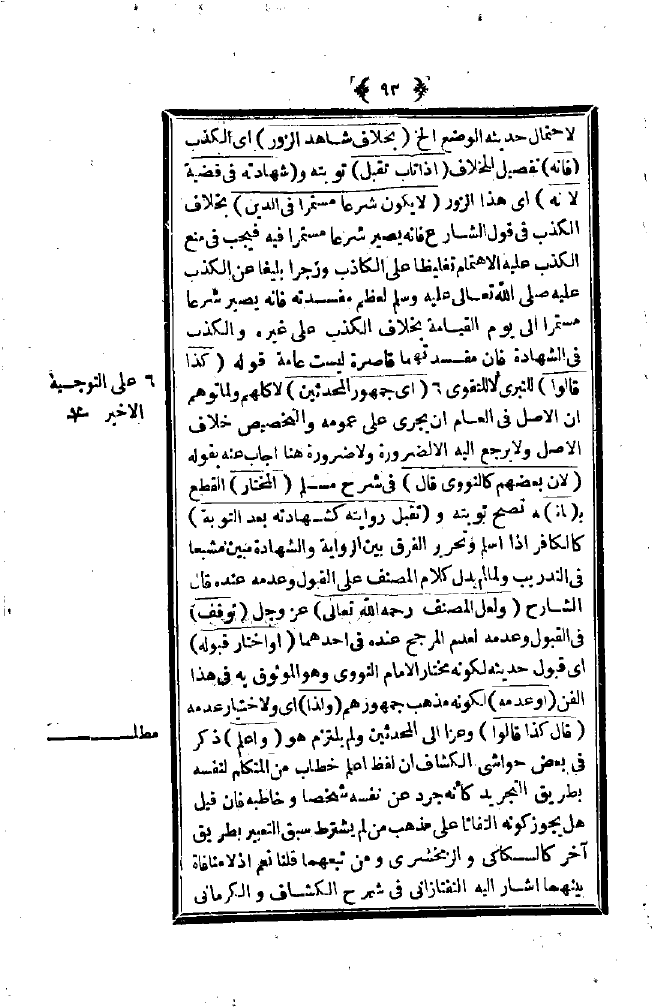 ٩٣
لاحتمال حديثه الوضع الخ ( بخلاف شاهد الزور ) اى الكذب
( فانه ) تفصيل المخلاف ( اذا تاب تقبل ) توبته و ( شهادته فى قضية
لانه ) اى هذا الزور ( لا يكون شرعا مستمرا فى الدين ) بخلاف
الكذب فى قول الشارع فانه يصير شرعا مستمرا فيه فيجب فى منع
الكذب عليه الاهتمام تغليظا على الكاذب وزجرا بليغا عن الكذب
عليه صلى الله تعالى عليه وسلم لعظم مفسدته فانه يصير شرعا
مستمرا الى يوم القيامة بخلاف الكذب على غيره والكذب
فى الشهادة فان مفسدتهما قاصرة ليست عامة قوله ( كذا
قالوا ) للتبرى لا للتقوى ٦ ( اى جمهور المحدثين ) لا كلهم ولما توهم
ان الاصل فى العام ان يجرى على عمومه والتخصيص خلاف
الاصل ولا يرجع اليه الا لضرورة ولا ضرورة هنا اجاب عنه بقوله
( لان بعضهم كالنووى قال ) فى شرح مسلم ( المختار ) القطع
ب ( انه ) تصح توبته و ( تقبل روايته كشهادته بعد التوبة )
كالكافر اذا اسلم وتحرير الفرق بين الرواية والشهادة مبين مشبعا
فى التدريب ولما لم يدل كلام المصنف على القبول وعدمه عنده قال
الشارح ( ولعل المصنف رحمه الله تعالى ) عز وجل ( توقف )
فى القبول وعدمه لعدم المرجح عنده فى احدهما ( او اختار قبوله )
اى قبول حديثه لكونه مختار الامام النووى وهو الموثوق به فى هذا
الفن ( او عدمه ) لكونه مذهب جمهورهم ( ولذا ) اى ولاختيار عدمه
( قال كذا قالوا ) وعزا الى المحدثين ولم يلتزم هو ( واعلم ) ذكر
فى بعض حواشى الكشاف ان لفظ اعلم خطاب من المتكلم لنفسه
بطريق التجريد كأنه جرد عن نفسه شخصا و خاطبه فان قيل
هل يجوز كونه التفاتا على مذهب من لم يشترط سبق التعبير بطريق
آخر كالسكاكى و الزمخشرى و من تبعهما قلنا نعم اذ لا منافاة
بينهما اشار اليه التفتازانى فى شرح الكشاف و الكرمانى
٦ على التوجيه
الاخير
مطلب